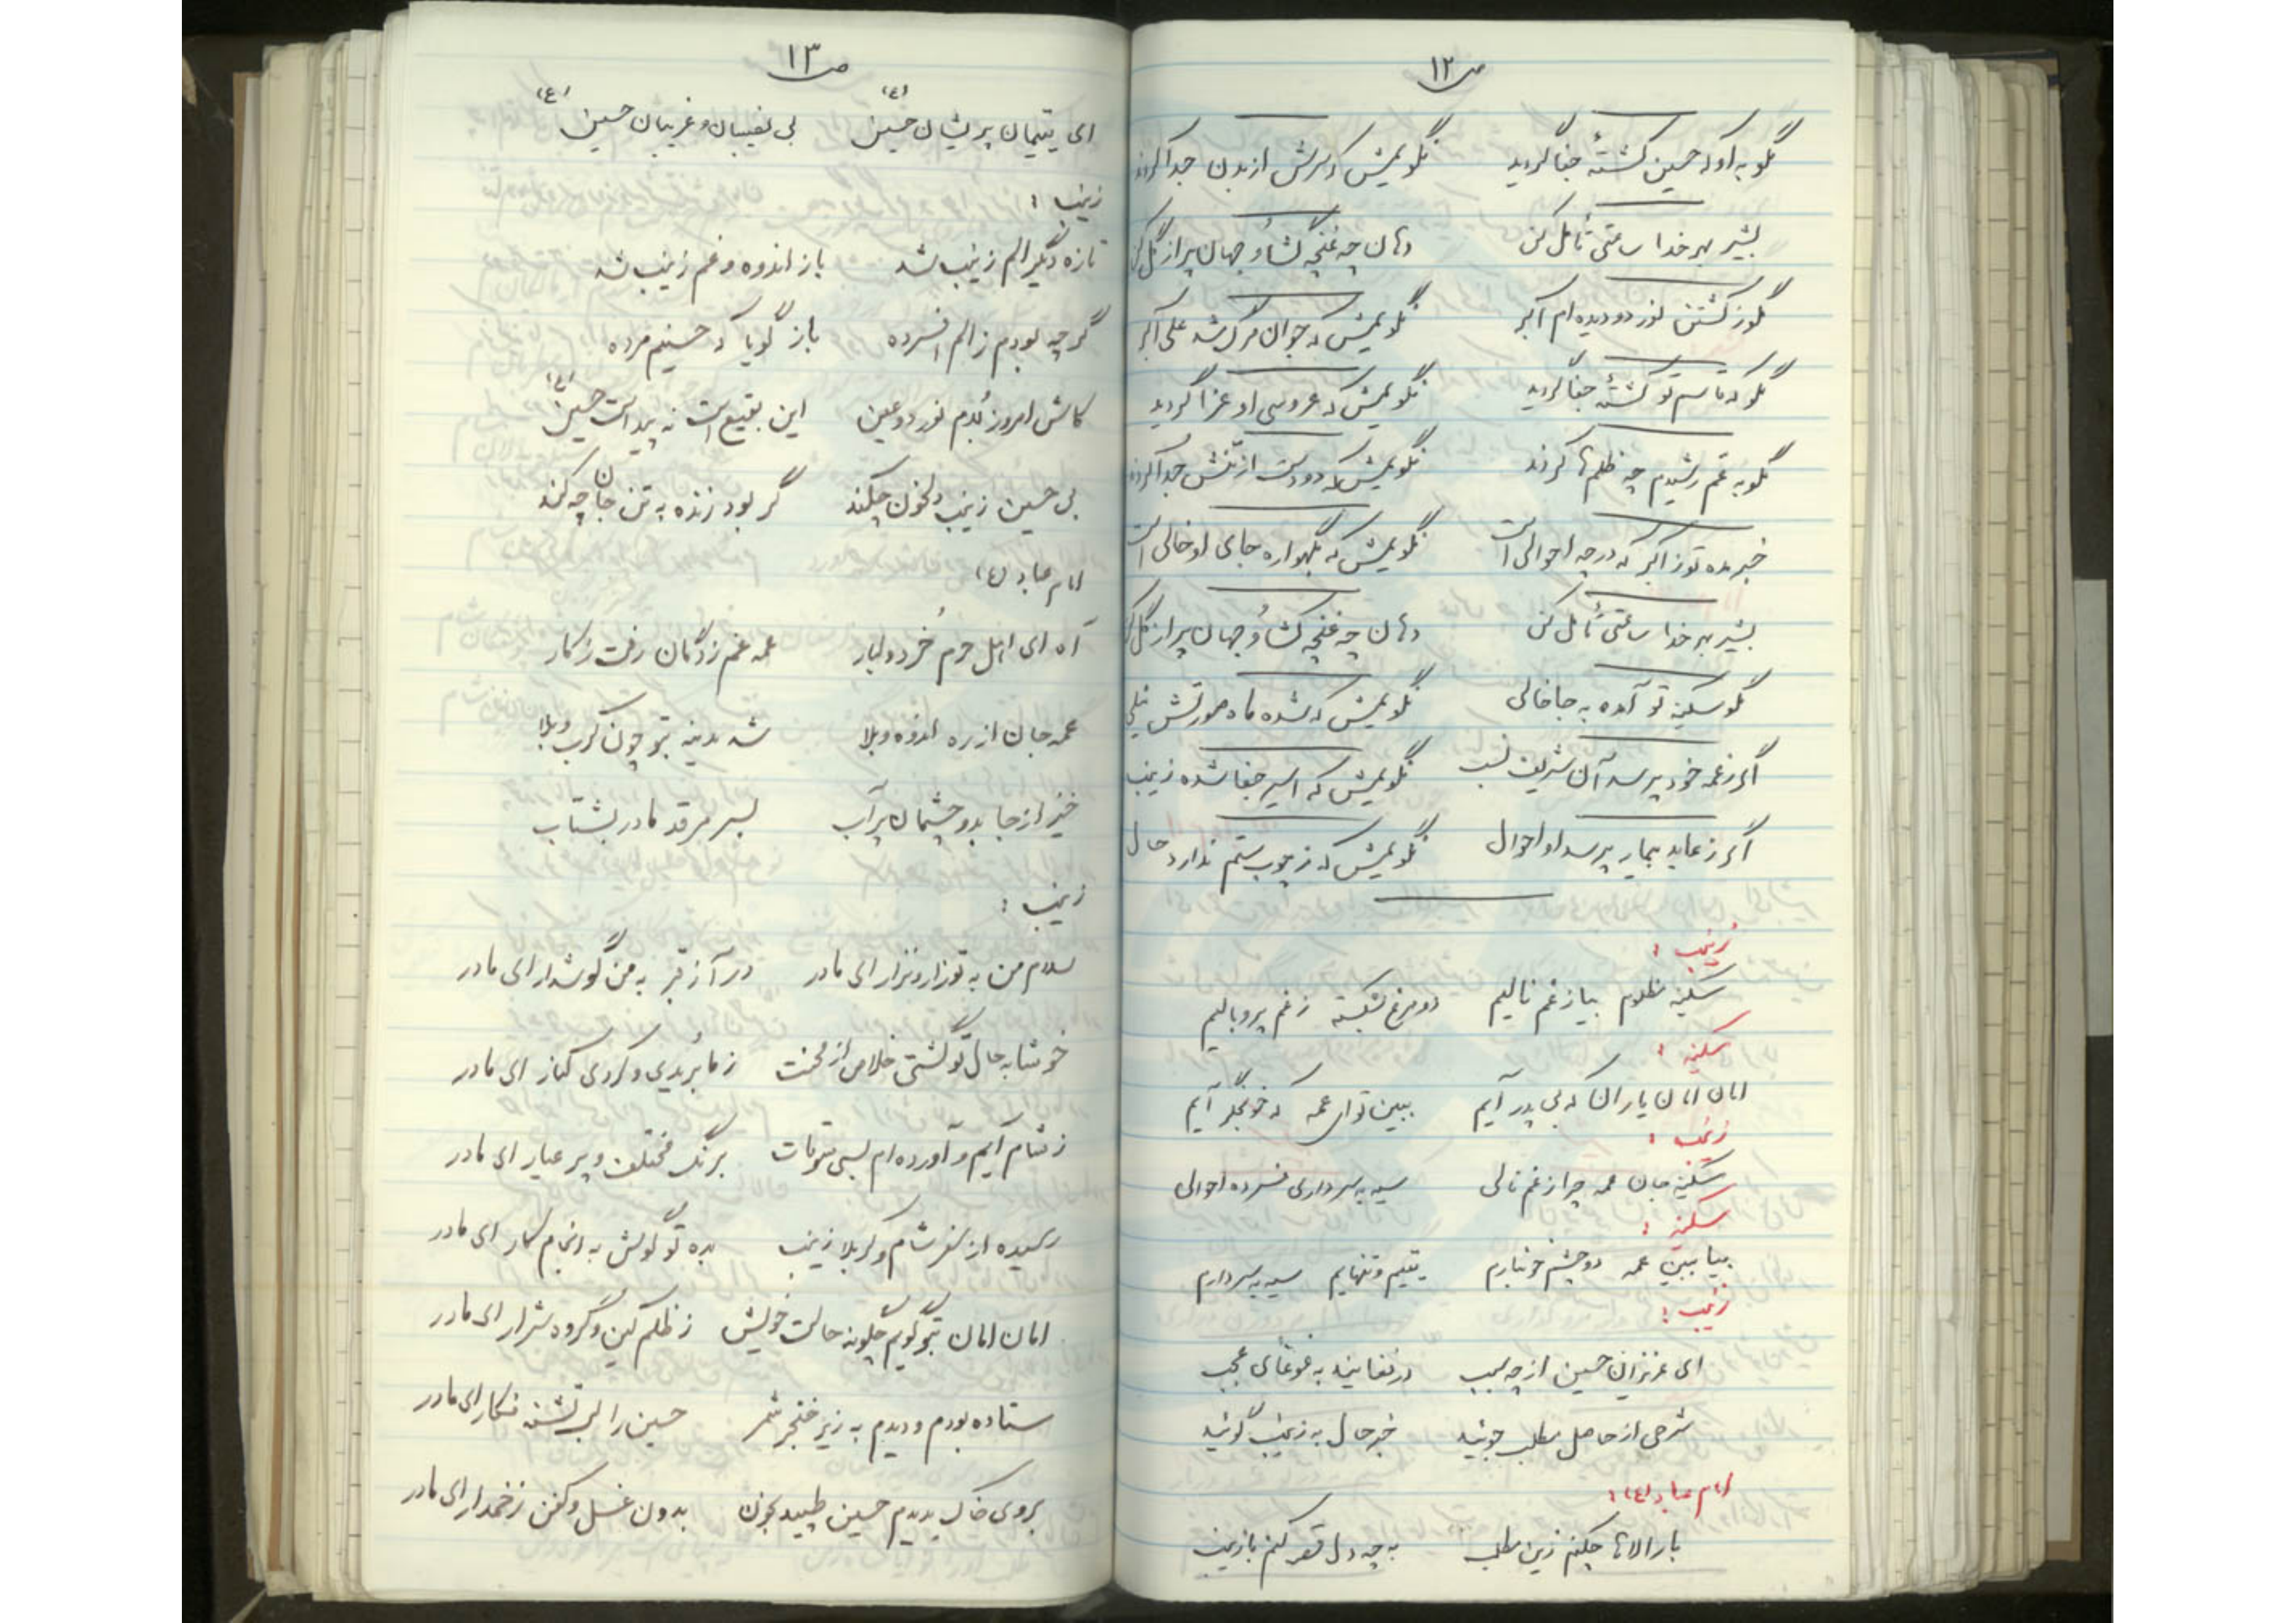 ص ۱۲
بگو به او که حسین کشتهٔ جفا گردید نگویمش که سرش از بدن جدا کردند
بشیر بهر خدا ساعتی تأمل کن دهان چه غنچه گشا و جهان پر از گل کن
بگو ز کشتن نور دو دیده ام اکبر نگویمش که جوان مرگ شد علی اکبر
بگو که قاسم تو کشتهٔ جفا گردید نگویمش که عروسی او عزا گردید
بگو به عم رشیدم چه ظلم ها کردند نگویمش که دو دست از تنش جدا کردند
خبر بده تو ز اکبر که در چه احوالی است نگویمش که بگهواره جای او خالی است
بشیر بهر خدا ساعتی تأمل کن دهان چه غنچه گشا و جهان پر از گل کن
بگو سکینه تو آمده به جا خالی نگویمش که شده ماه صورتش نیلی
اگر ز عمه خود پرسد آن شریف نسب نگویمش که اسیر جفا شده زینب
اگر ز عابد بیمار پرسد او احوال نگویمش که ز چوب ستم ندارد حال
زینب :
سکینه مظلوم بیا ز غم نالیم دو مرغ بشکسته ز غم پر و بالیم
سکینه :
امان امان یاران که بی پدر آیم ببین تو ای عمه که خونجگر آیم
زینب :
سکینه جان عمه چرا ز غم نالی سیه به سر داری فسرده احوالی
سکینه :
بیا ببین عمه دو چشم خونبارم یتیم و تنهایم سیه به سر دارم
زینب :
ای عزیزان حسین از چه سبب در نفایند به غوغای عجب
شرحی از حاصل مطلب جوئید خبر حال به زینب گوئید
امام عباد (ع) :
بار الاها چکنم زین مطلب به چه دل قهر کنم با زینب
ص ۱۳
ای یتیمان پریشان حسین (ع) بی نصیبان و غریبان حسین (ع)
زینب :
تازه دیگر الم زینب شد باز اندوه و غم زینب شد
گر چه بودم ز الم افسرده باز گویا که حسینم مرده
کاش امروز بُدم نور دو عین این بقیع است نه پیداست حسین (ع)
بی حسین زینب دلخون چکند گر بود زنده به تن جان چه کند
امام عباد (ع)
آه ای اهل حرم خُرد و کبار عمه غم زدگان رفت ز کار
عمه جان از ره اندوه و بلا شد مدینه بتو چون کرب و بلا
خیز از جا بدو چشمان پر آب بسر مرقد مادر بشتاب
زینب :
سلام من به تو زار و نزار ای مادر در آ ز قبر به من گوشدار ای مادر
خوشا به حال تو گشتی خلاص از محنت ز ما بُریدی و کردی کنار ای مادر
ز شام آیم و آورده ام بسی سوقات برنگ مختلف و پر عیار ای مادر
رسیده از سفر شام و کربلا زینب بده تو گوش به انجام کار ای مادر
امان امان بتو گویم چگونه حالت خویش ز ظلم کین و گروه شرار ای مادر
ستاده بودم و دیدم به زیر خنجر شمر حسین را لب تشنه فکار ای مادر
بروی خاک بدیدم حسین طپید بخون بدون غسل و کفن زخمدار ای مادر